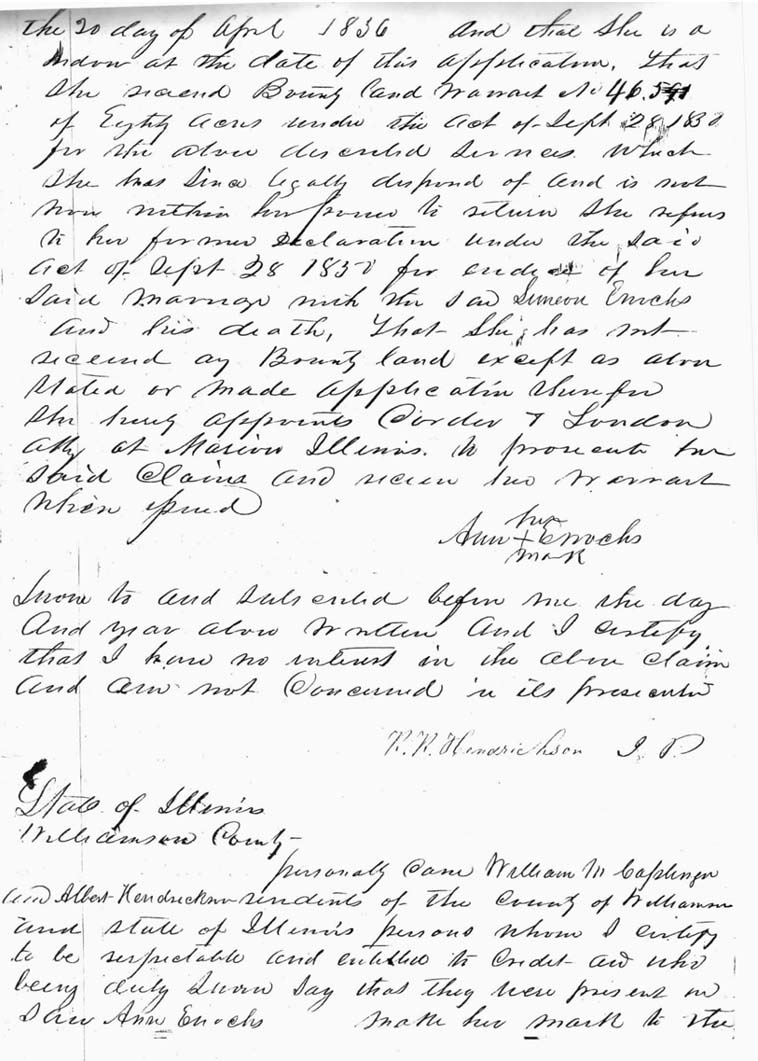 the 20 day of April 1836 And that she is a
widow at the date of this application, That
she receivd Bounty Land Warrant No 46.591
of Eighty Acres under the Act of Sept 28 1850
for the above described services Which
she has since legally disposd of and is not
now within her power to return She refers
to her former declaration under the said
Act of Sept 28 1850 for evidence of her
said marriage with the said Simeon Enochs
And his death, That She has not
received any Bounty land except as above
stated or made application therefor
She hereby appoints Corder & London
Atty at Marion Illinois. to prosecute her
said Claim and receive her warrant
when issued
her
Ann + Enochs
mark
Sworn to and subscribed before me the day
And year above written And I certify
that I have no interest in the above claim
and am not Concerned in its
R. R. Hendrickson J. P.
State of Illinois
Williamson County
personally Came William M Caplinger
and Albert Hendrickson residents of the County of Williamson
and state of Illinois persons whom I certify
to be respectable and entitled to credit and who
being duly sworn say that they were present and
saw Ann Enochs make her mark to the